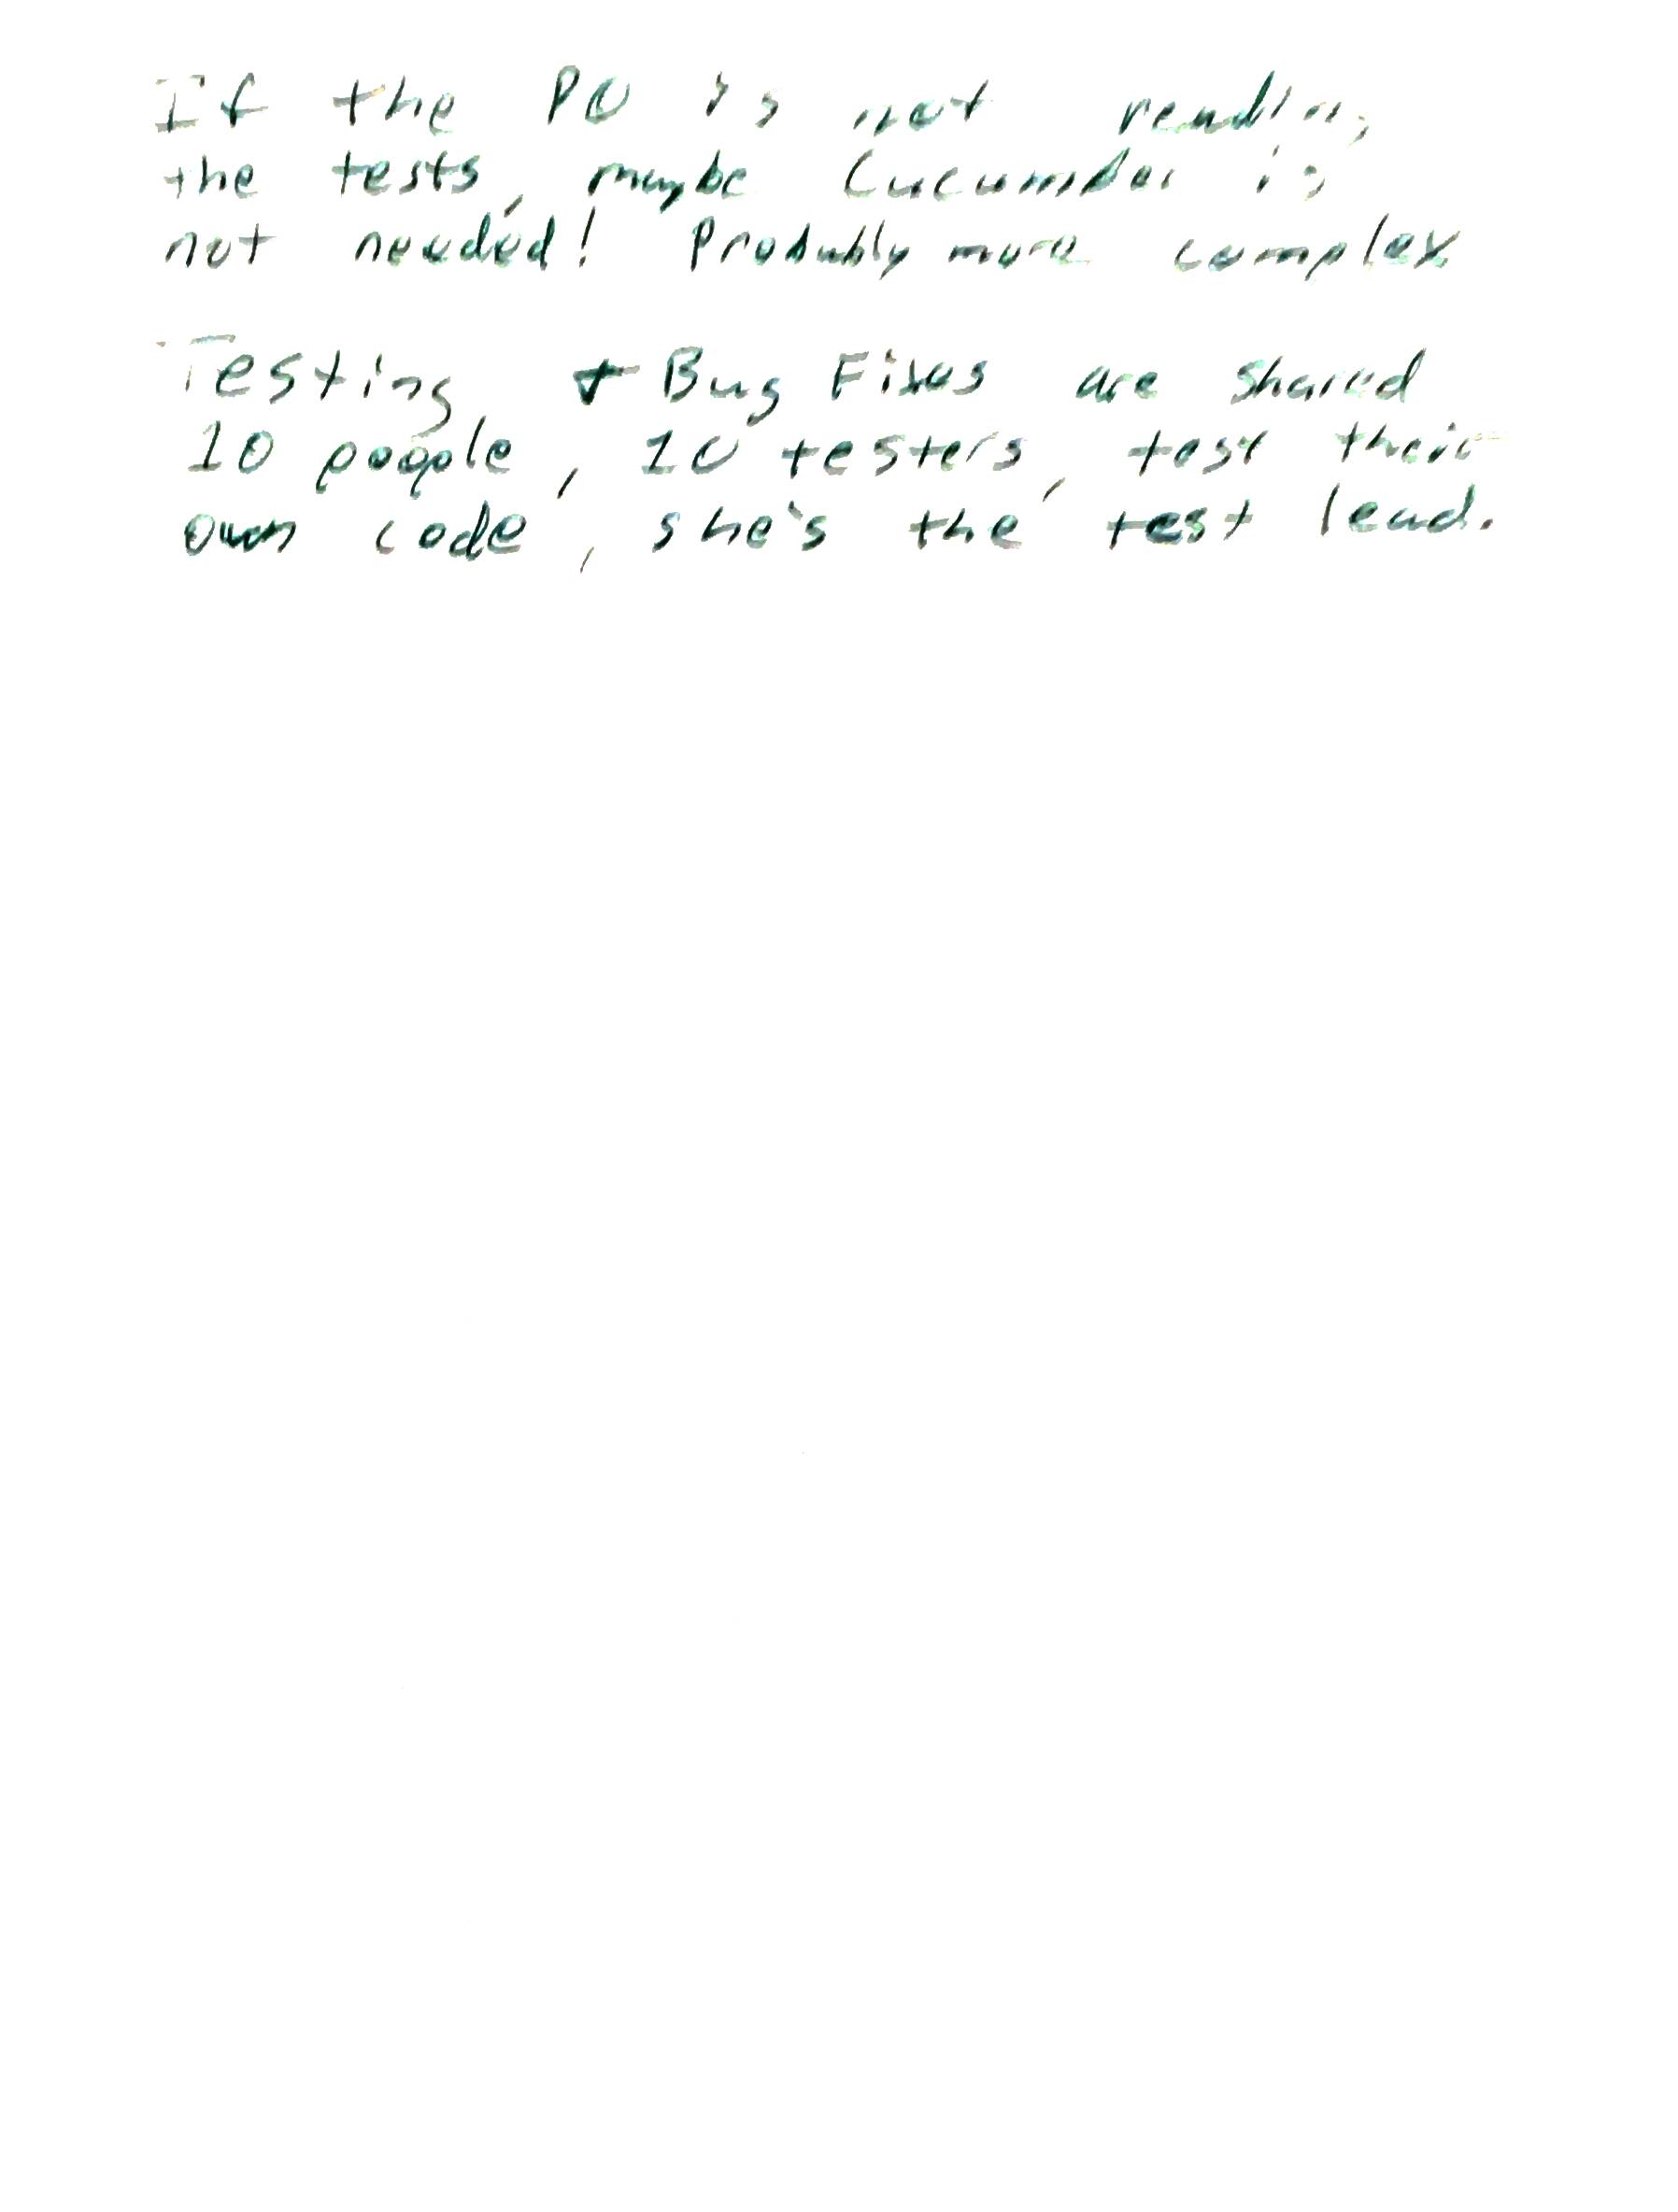 If the PO is not reading
the tests, maybe Cucumber is
not needed! Probably more complex
Testing + Bug Fixes are shared
10 people, 10 testers, test their
own code, she's the test lead.